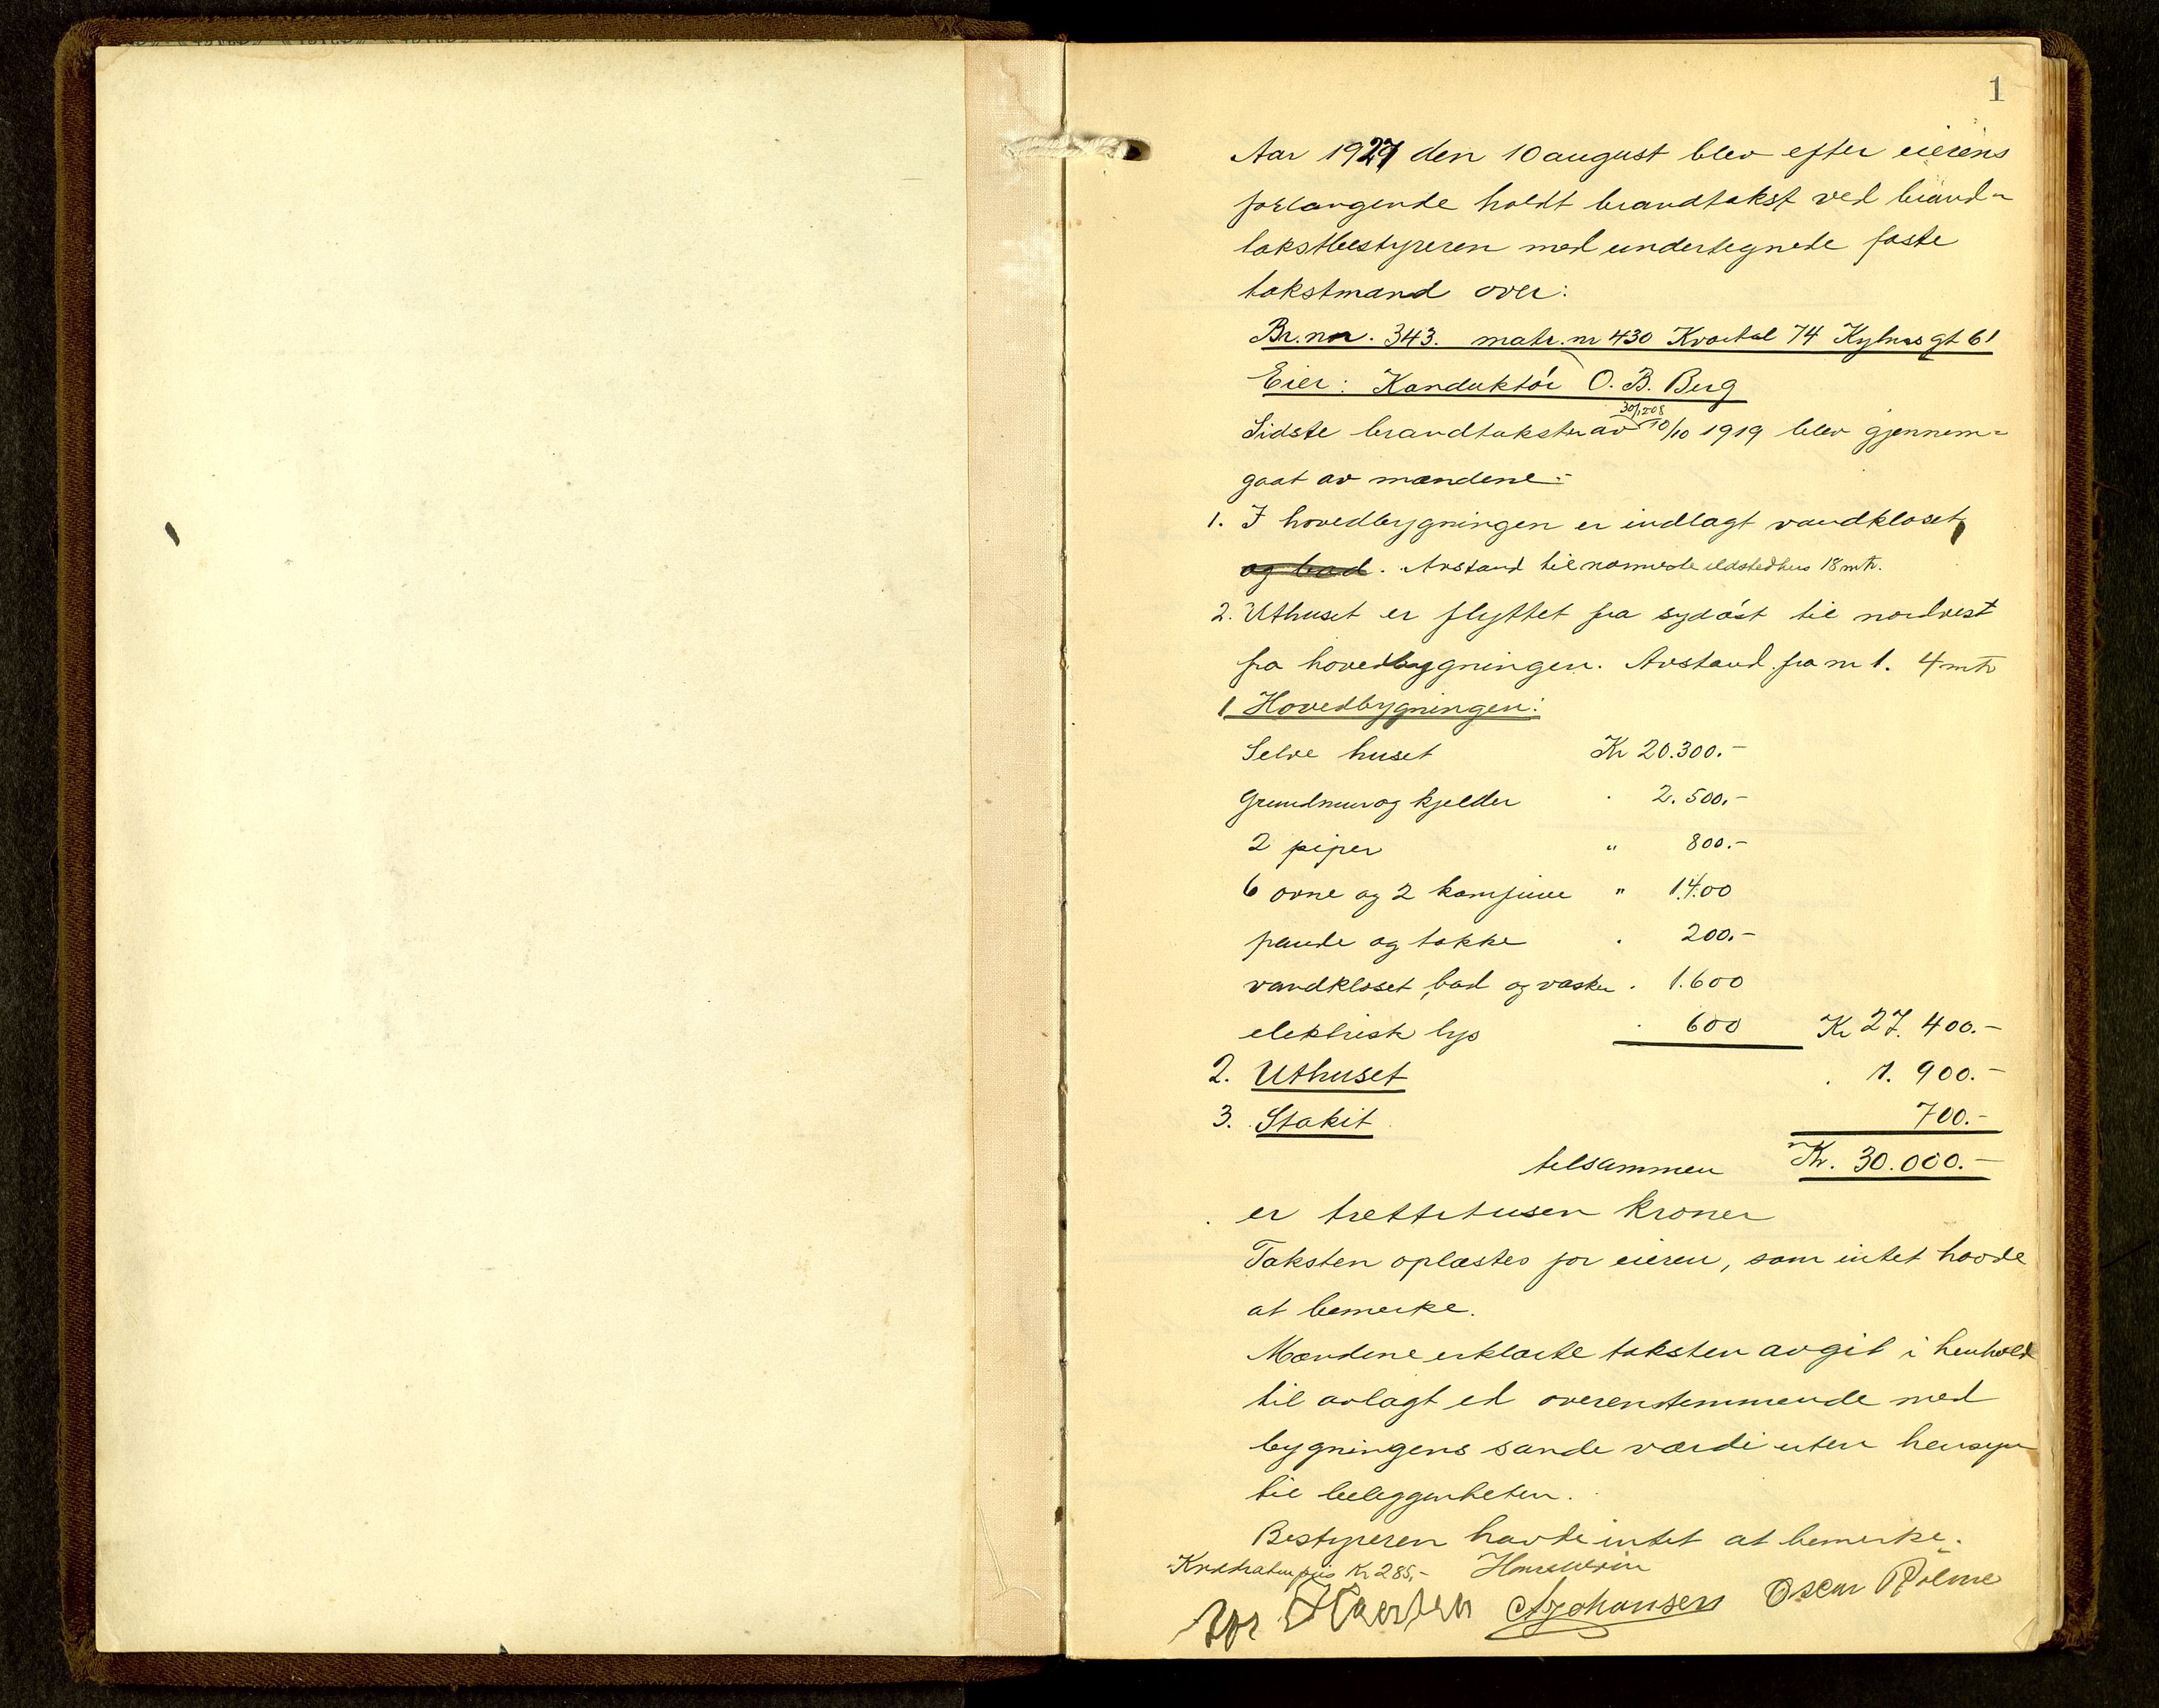 1
Aar 1927 den 10 august blev efter eierens
forlangende holdt brandtakst ved brand-
takstbestyreren med undertegnede faste
takstmænd over:
Br.nr. 343. matr. nr 430 Kvartal 74 Kylnos gt 61
Eier: Konduktör O. B. Berg
Sidste brandtakster av 10/10 1919 blev gjennem=
gaat av mændene:-
1. I hovedbygningen er indlagt vandkloset
og bad. Avstand til nærmeste ildstedhus 18 mtr.
2. Uthuset er flyttet fra sydöst til nordvest
fra hovedbyggningen. Avstand fra nr 1. 4 mtr
1 Hovedbygningen:
Selve huset Kr 20.300.-
Grundmur og kjelder " 2.500,-
2 piper " 800.-
6 ovne og 2 komfiure " 1.400
pande og takke " 200,-
vandkloset, bad og vasker " 1.600
elektrisk lys " 600 Kr 27.400.-
2. Uthuset " 1.900.-
3. Stakit 700.-
tilsammen Kr. 30.000.-
er trettitusen kroner
Taksten oplæstes for eieren, som intet havde
at bemerke.
Mændene erklærte taksten avgit i henhold
til avlagt ed overenstemmende med
bygningens sande værdi uten hensyn
til beliggenheten.
Bestyreren havde intet at bemerke.
Kvadratmpris Kr 285,-
A Johansen Oscar Holme